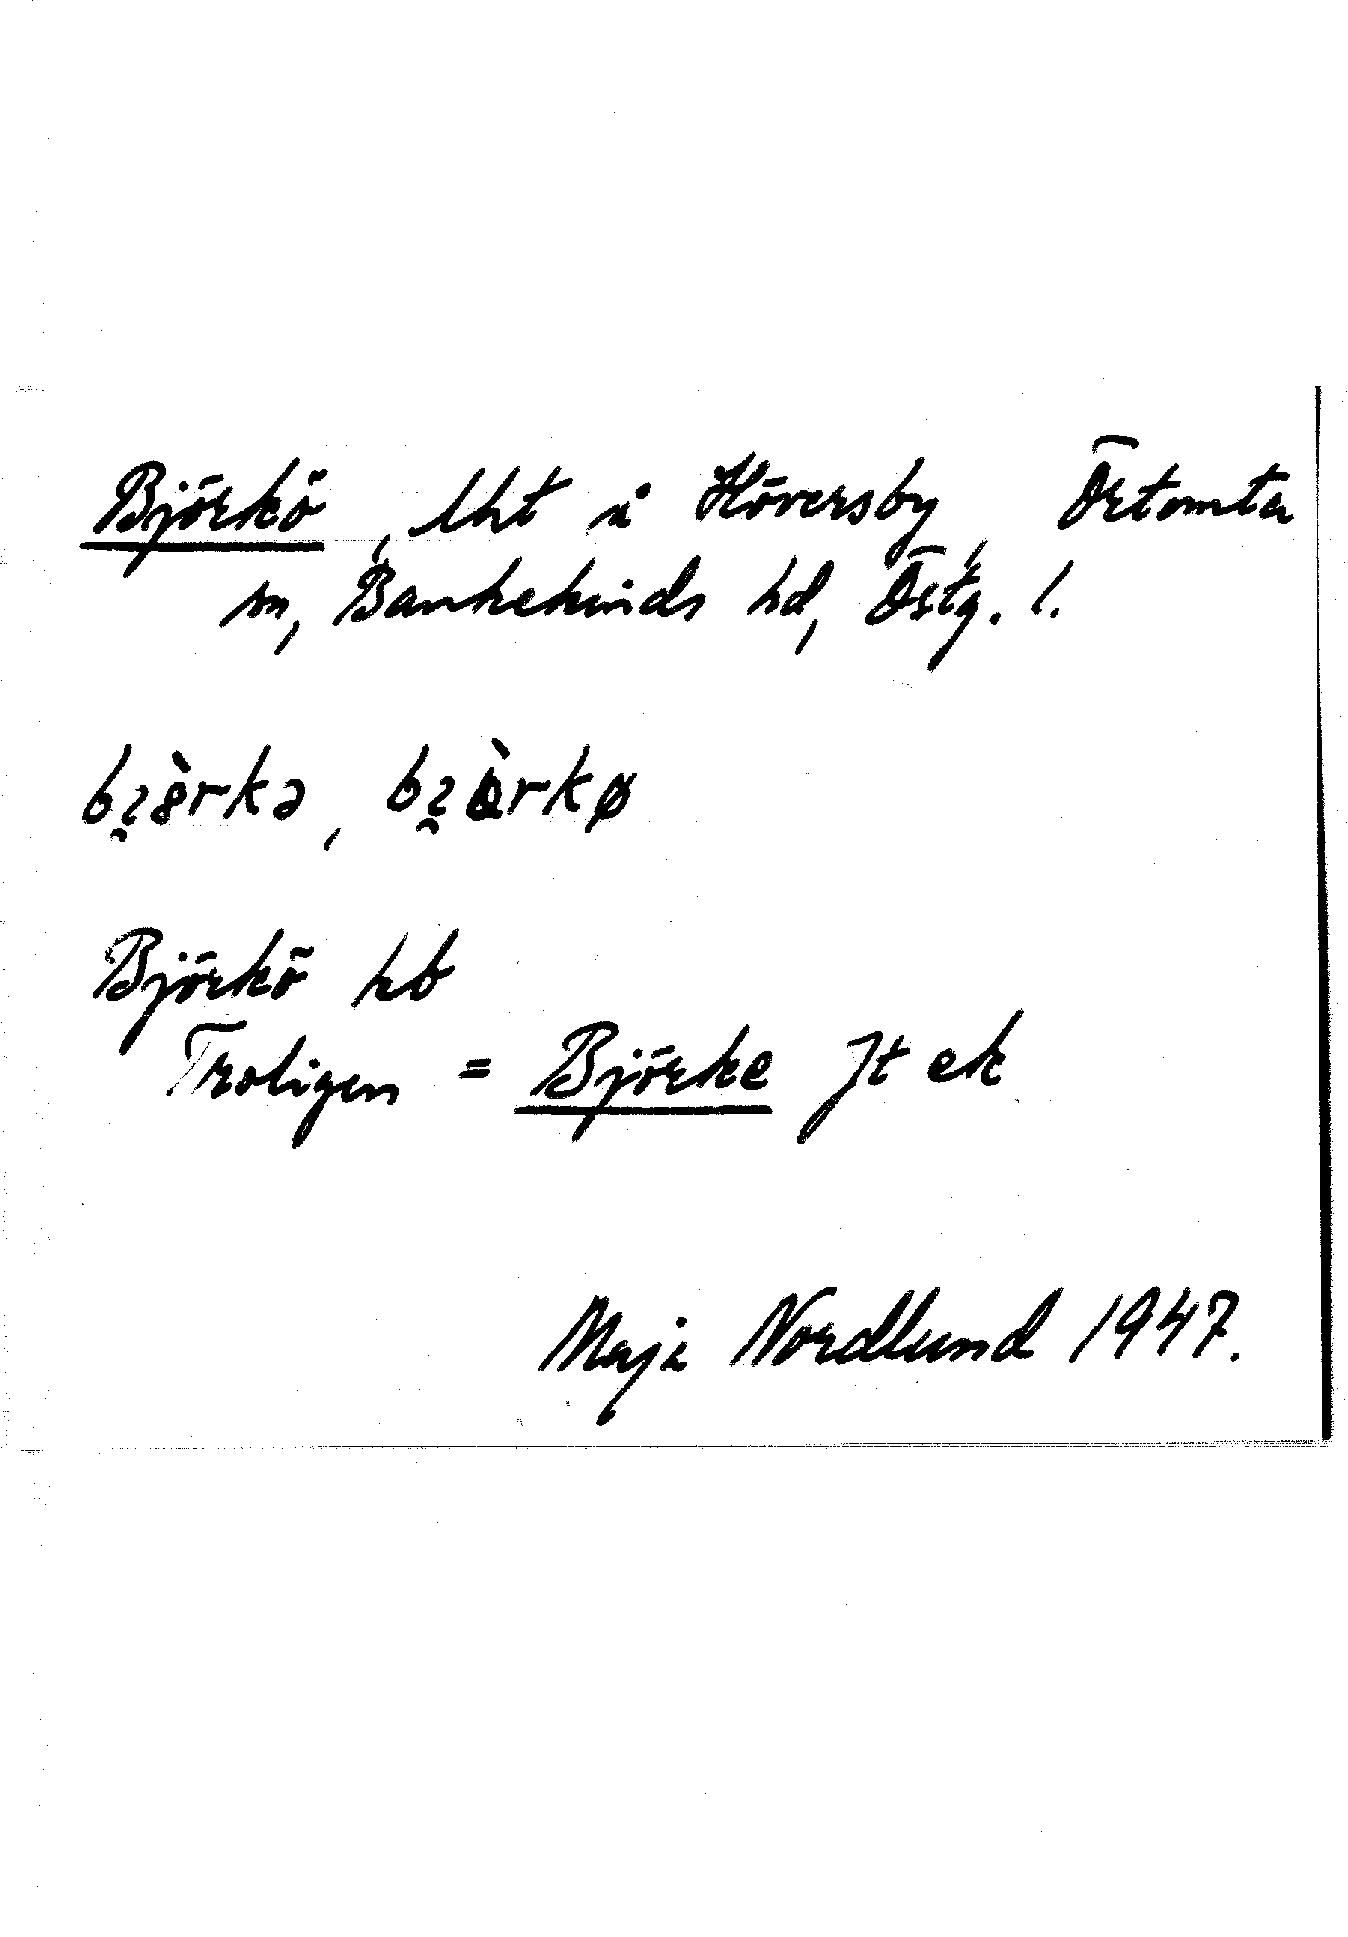 Björkö, lht å Höversby, Örtomta
sn, Bankekinds hd, Östg. l.
bi̯ɵ̀rkə, bi̯ɵ̀rkø
Björkö hb
Troligen = Björke Jt ek
Maja Nordlund 1947.